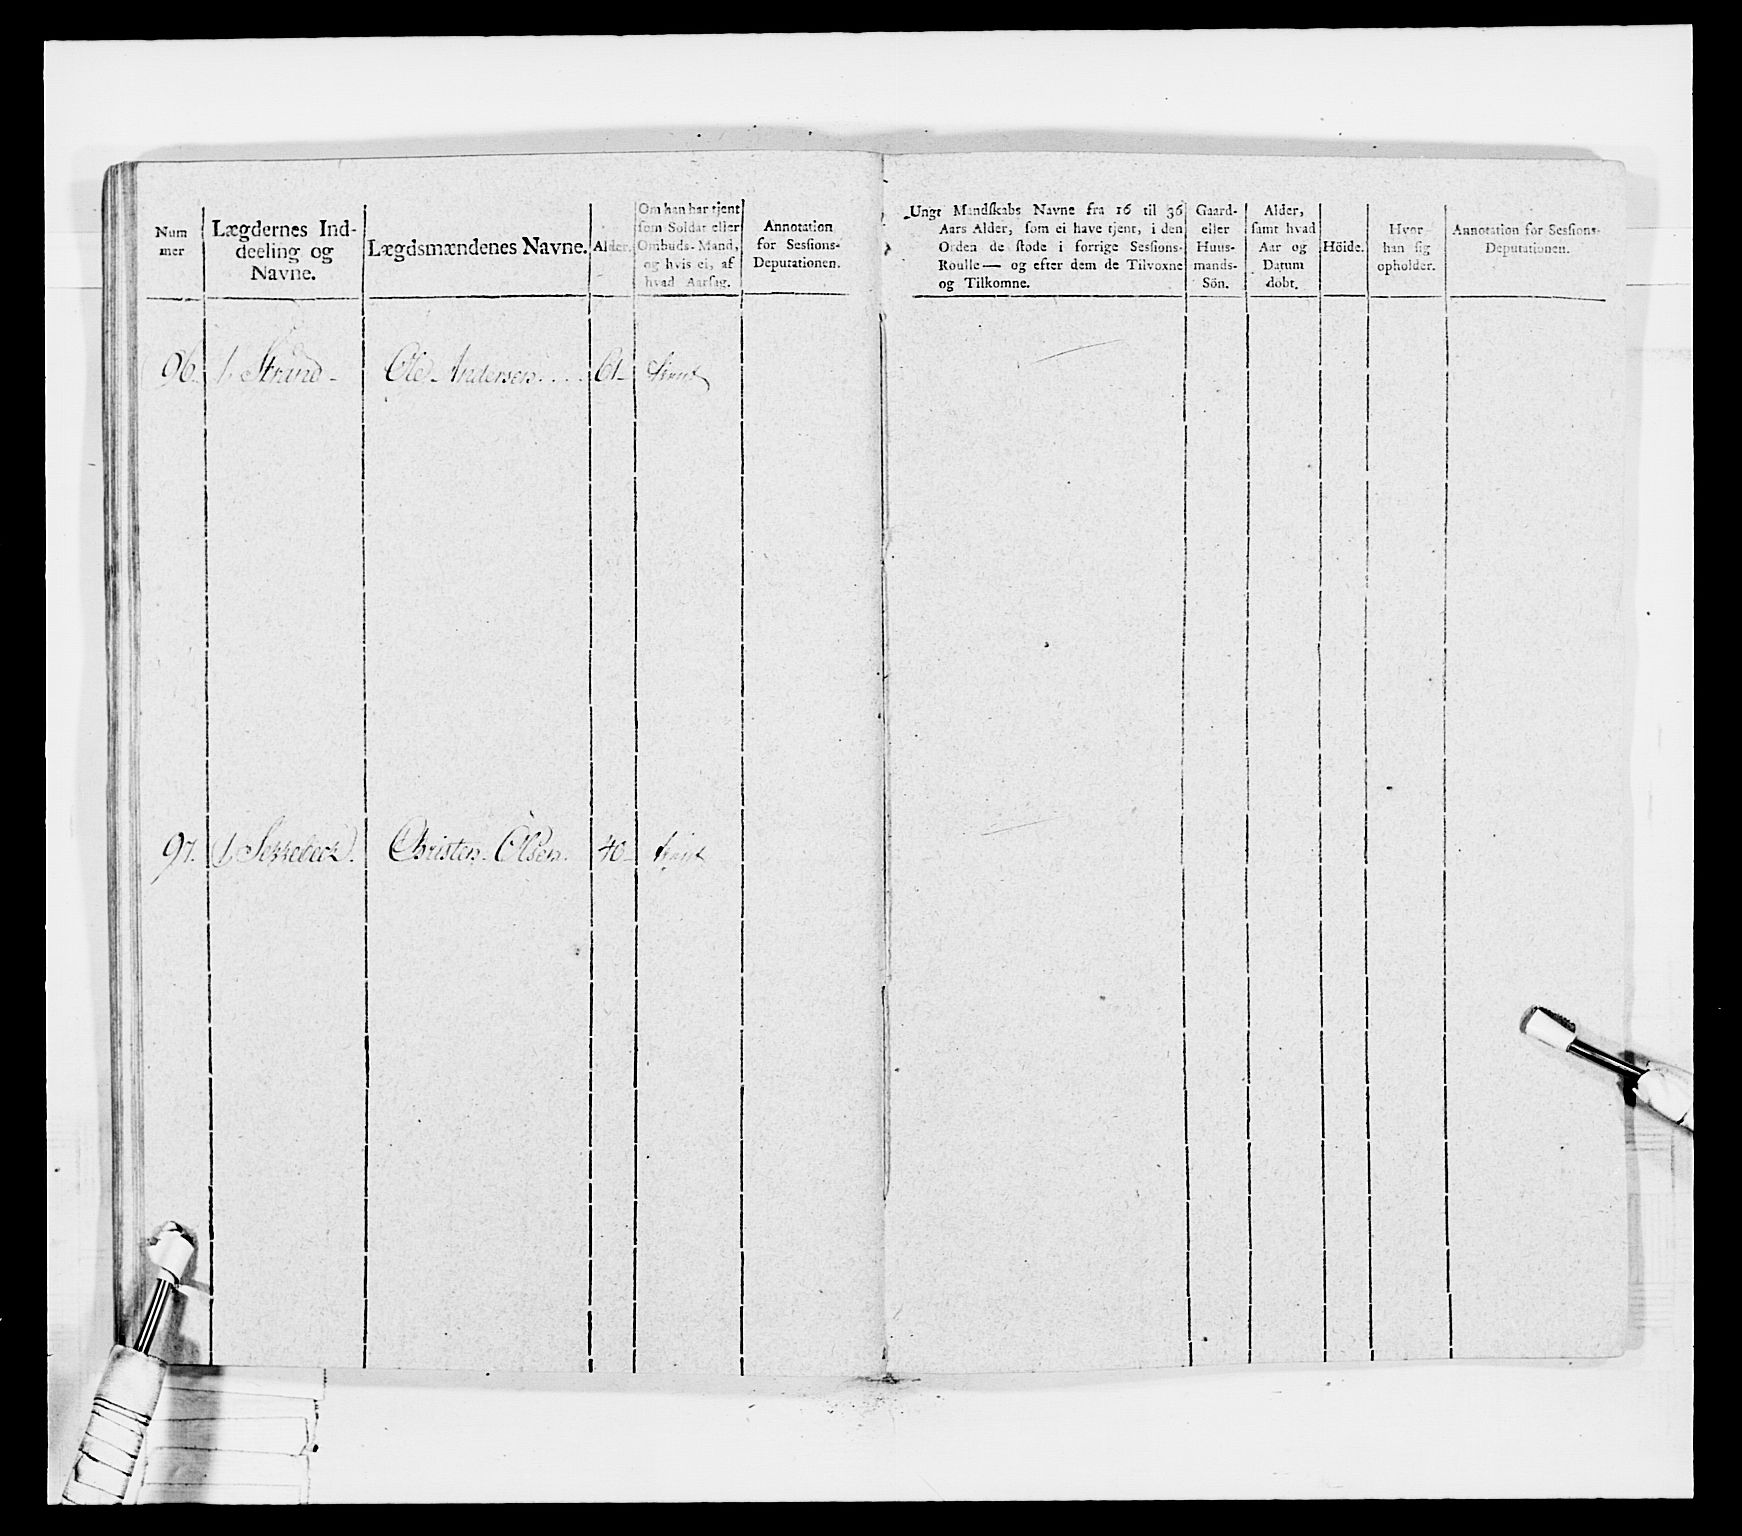 Num
mer
Lægdernes Ind-
deeling og
Navne.
Lægdsmændenes Navne.
Alder.
Om han har tjent
som Soldat eller
Ombuds-Mand,
og hvis ei, af
hvad Aarsag.
Annotation
for Sessions-
Deputationen.
Ungt Mandskabs Navne fra 16 til 36
Aars Alder, som ei have tjent, i den
Orden de stode i forrige Sessions-
Roulle— og efter dem de Tilvoxne
og Tilkomne.
Gaard-
eller
Huus-
mands-
Sön.
Alder,
samt hvad
Aar og
Datum
döbt.
Höide.
Hvor
han sig
opholder.
Annotation for Sessions-
Deputationen.
96. 1 Strand - Ole Andersen.... 61- tient
97. 1 Sekkebeck. Christen Olsen. 40- tient